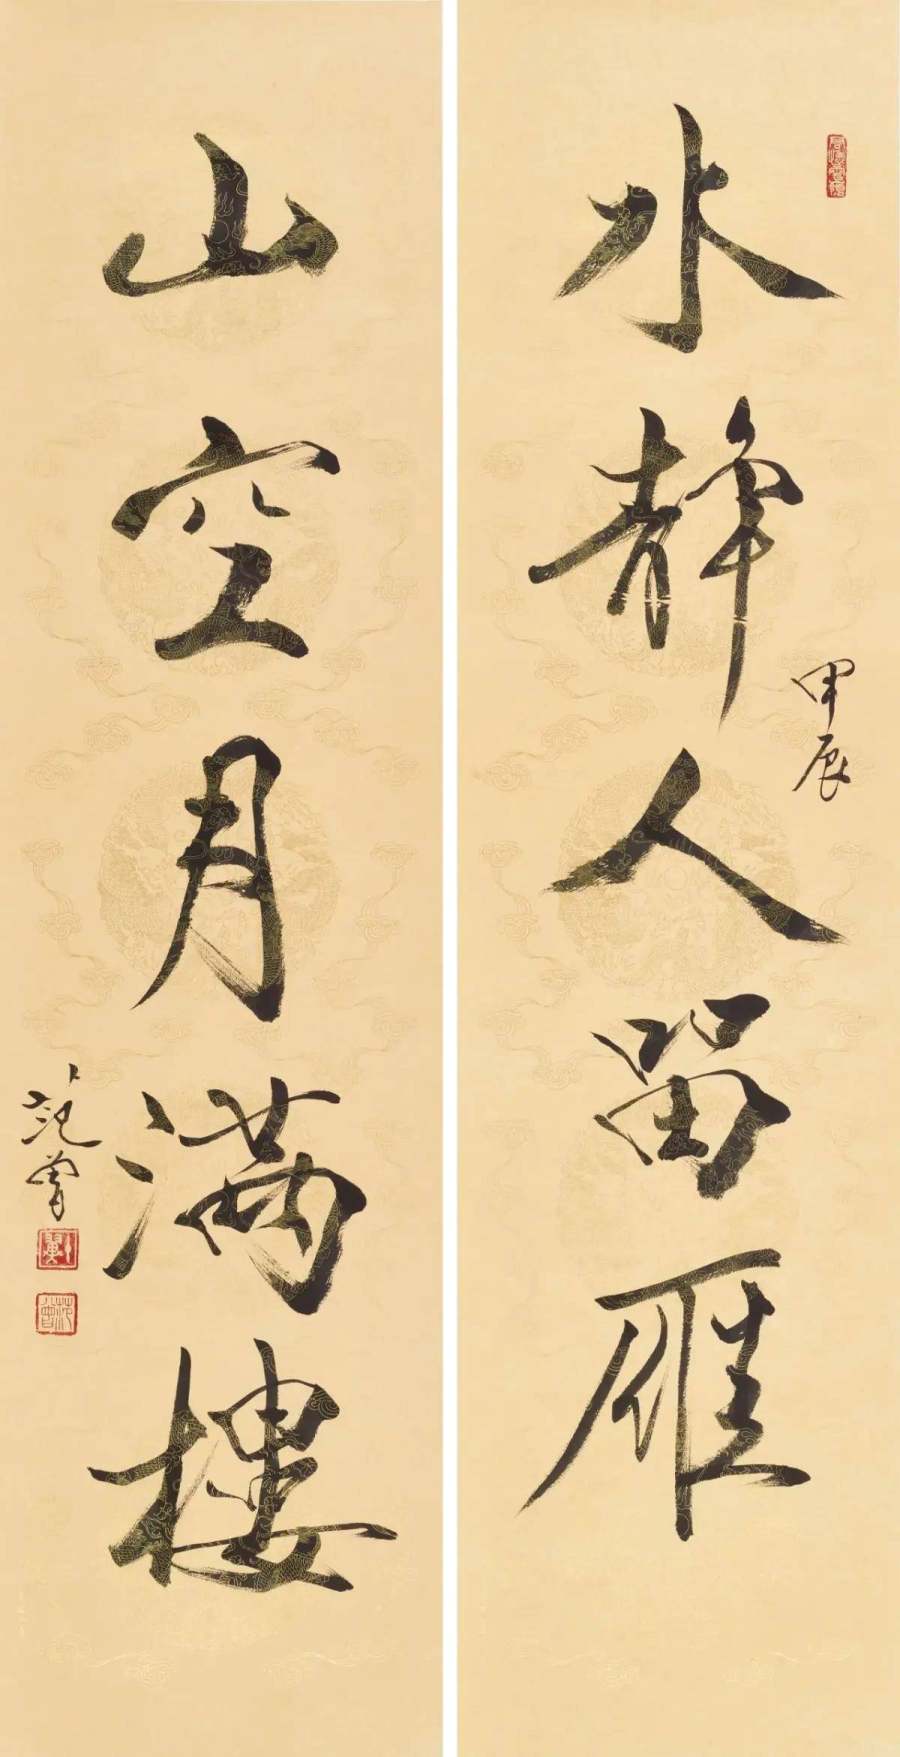 水静人留雁
甲辰
山空月满樓
范曾
范曾